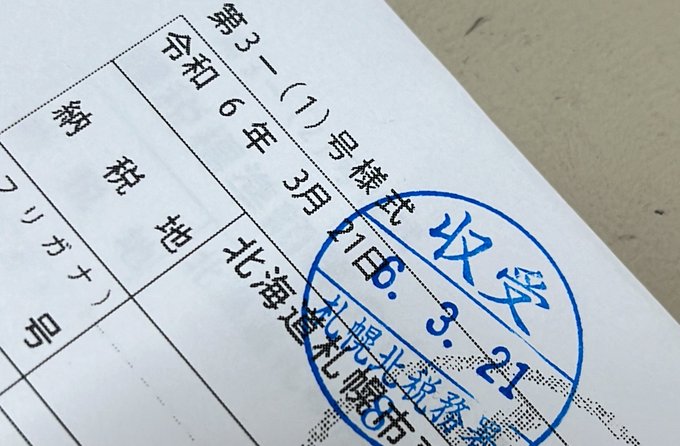 第3-(1)号様式
令和 6年 3月 21日
納税地
北海道札幌市
フリガナ)
号
収受
6. 3. 21
札幌北税務署
8